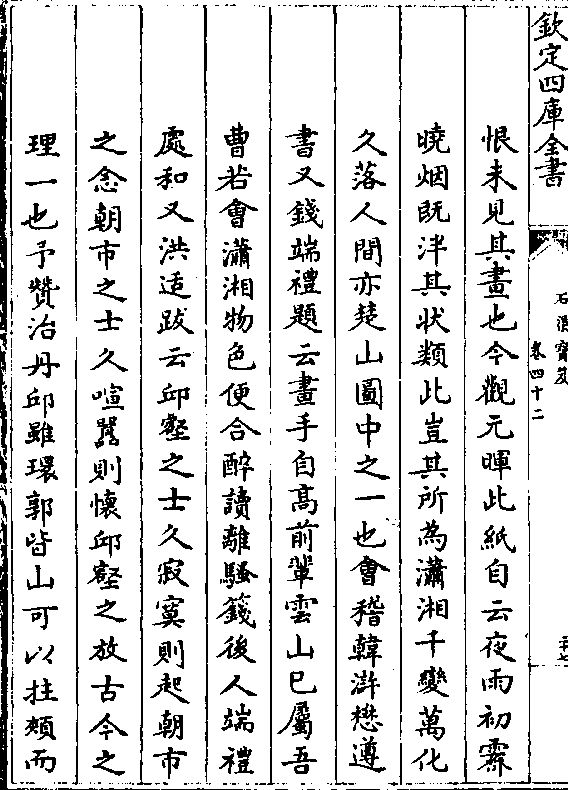 欽定四庫全書
石渠寳笈
卷四十二
恨未見其畫也今觀元暉此紙自云夜雨初霽
曉烟既泮其狀類此豈其所為瀟湘千變萬化
久落人間亦楚山圖中之一也會稽韓滸懋遵
書又錢端禮題云畫手自髙前輩雲山已屬吾
曹若會瀟湘物色便合醉讀離騷箋後人端禮
處和又洪适跋云邱壑之士久寂寞則起朝市
之念朝市之士久喧囂則懷邱壑之放古今之
理一也予贊治丹邱雖環郭皆山可以拄頰而